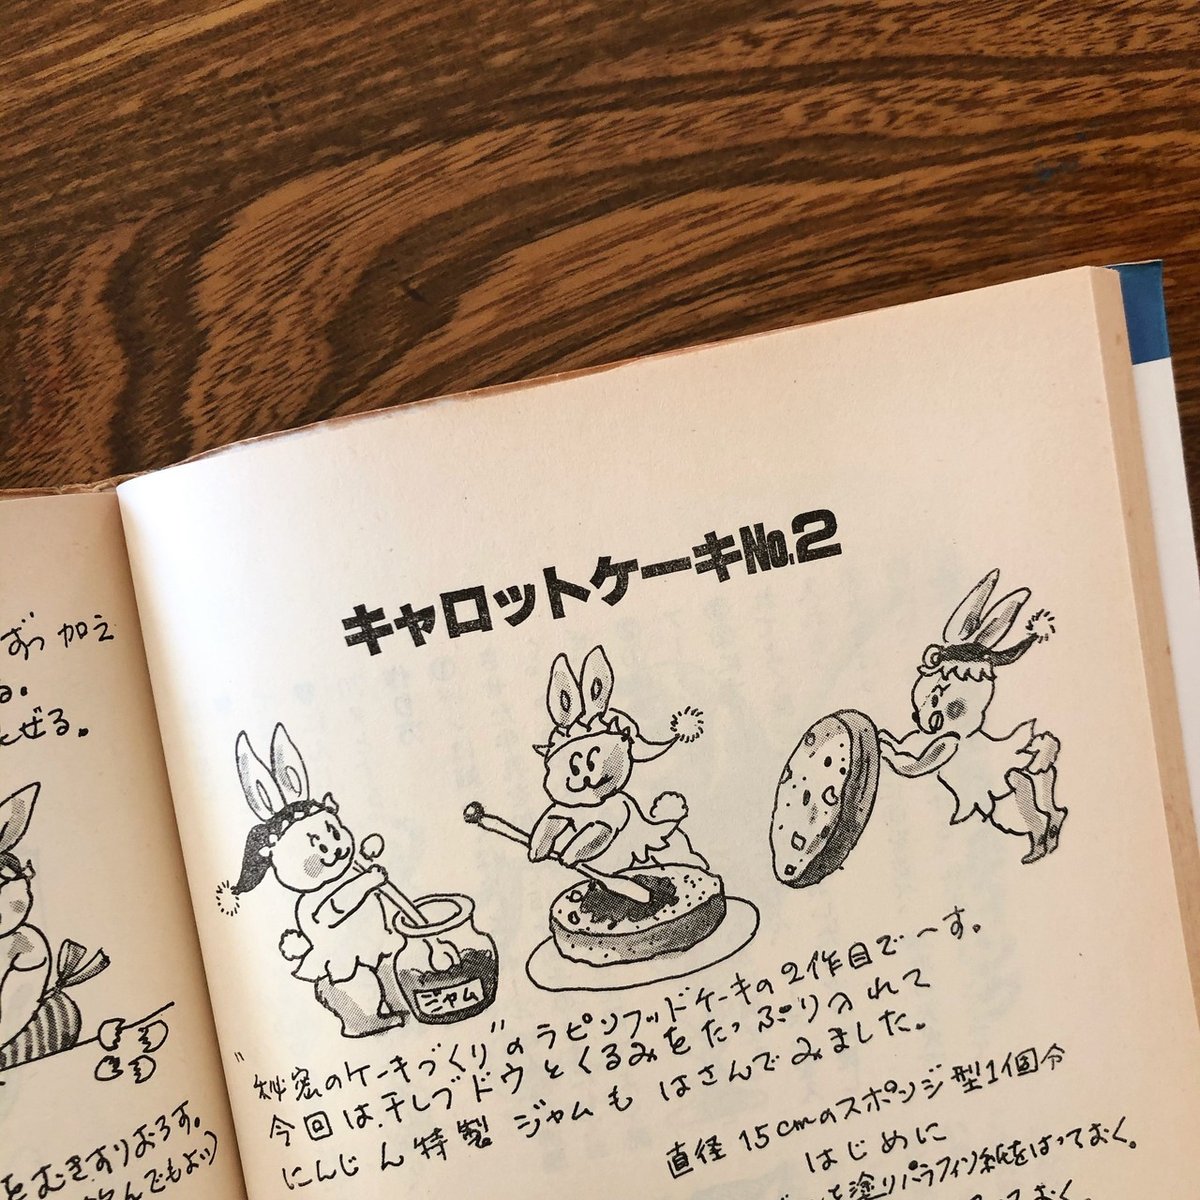 ずつ加え
る。
ぜる。
をむきすりおろす。
んでもよい)
キャロットケーキNo.2
ジャム
"秘密のケーキづくり"のラピンフッドケーキの2作目で〜す。
今回は、干しブドウとくるみをたっぷり入れて
にんじん特製ジャムもはさんでみました。
直径15cmのスポンジ型1個分
はじめに
を塗りパラフィン紙をはっておく。
ておく。